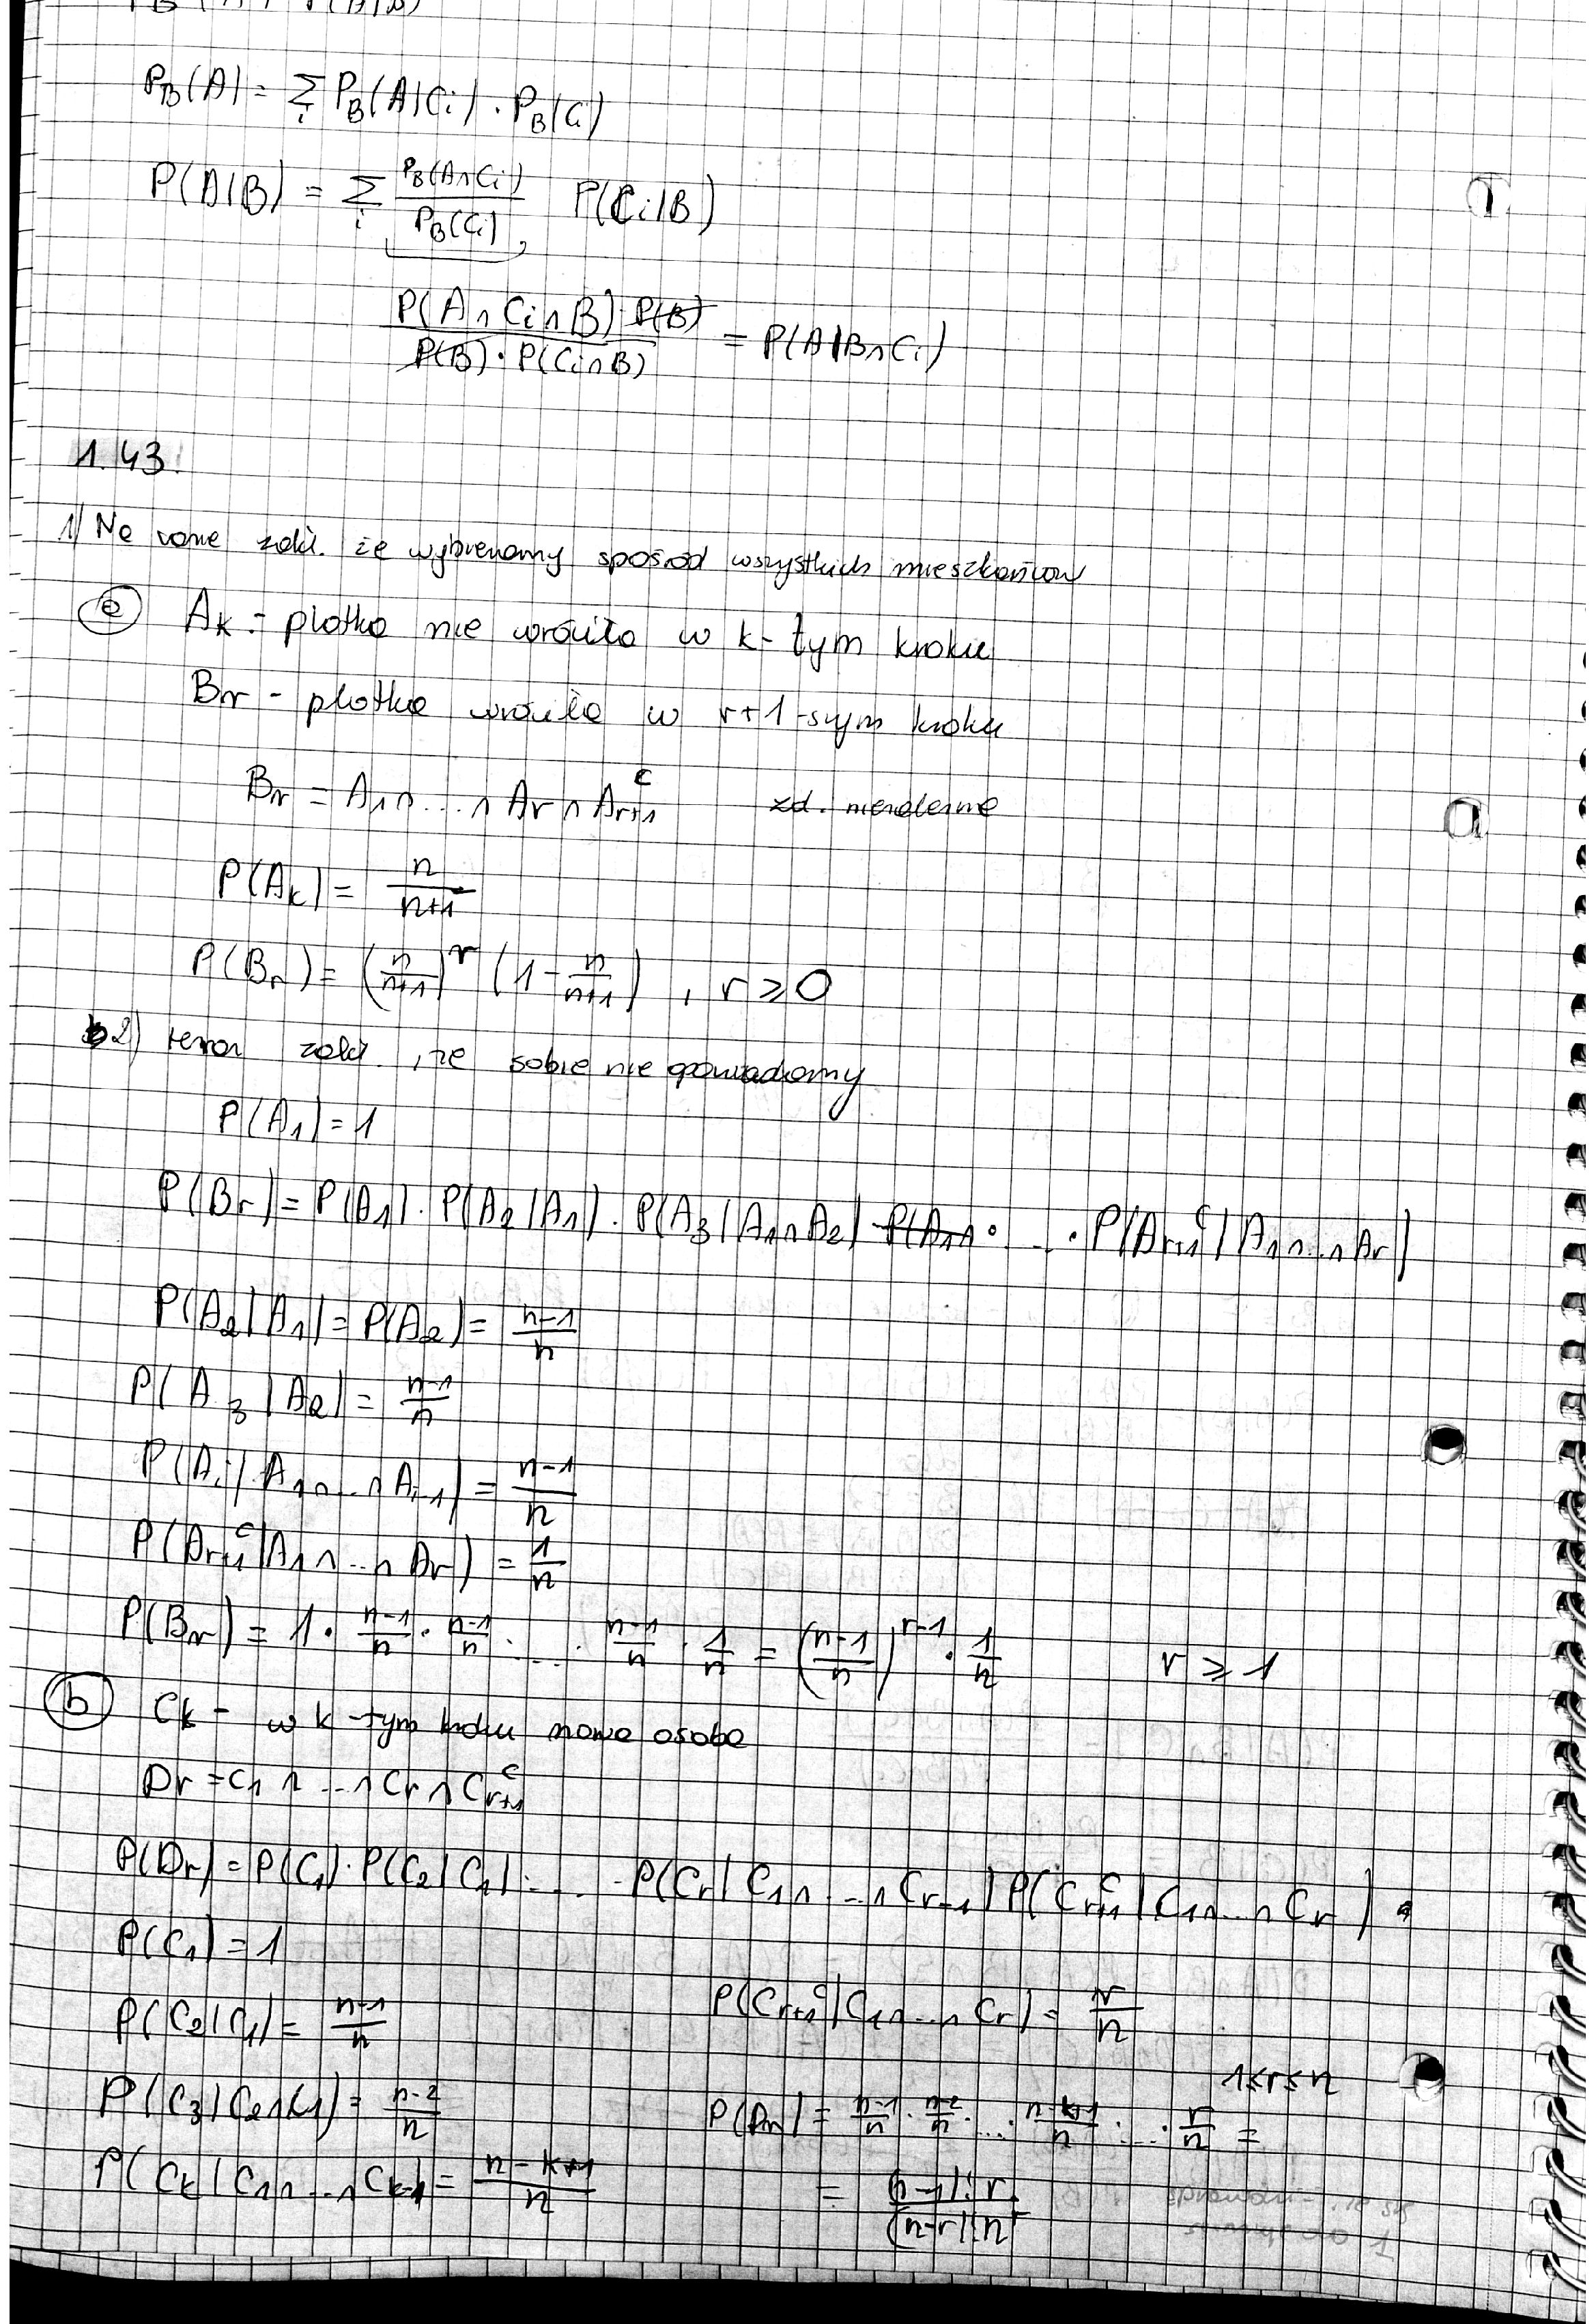 P_B(A) = Σ_i P_B(A|Ci) · P_B(Ci)
P(A|B) = Σ_i P_B(A∩Ci) / P_B(Ci) P(Ci|B)
P(A∩Ci∩B) · P(B) / P(B) · P(Ci∩B) = P(A|B∩Ci)
1.43.
1) Na razie zakł. że wybieramy spośród wszystkich mieszkańców
(a) Ak - plotka nie wróciła w k-tym kroku
Br - plotka wróciła w r+1-szym kroku
Br = A1∩...∩Ar∩Ar+1^c zd. niezależne
P(Ak) = n/(n+1)
P(Br) = (n/(n+1))^r (1 - n/(n+1)) , r ≥ 0
2) teraz zakł., że sobie nie opowiadamy
P(A1) = 1
P(Br) = P(A1) · P(A2|A1) · P(A3|A1∩A2) P(A1∩ · ... · P(Ar+1^c|A1∩...∩Ar)
P(A2|A1) = P(A2) = (n-1)/n
P(A3|A2) = (n-1)/n
P(Ai|A1∩...∩Ai-1) = (n-1)/n
P(Ar+1^c|A1∩...∩Ar) = 1/n
P(Br) = 1 · (n-1)/n · (n-1)/n · ... · (n-1)/n · 1/n = ((n-1)/n)^(r-1) · 1/n r ≥ 1
(b) Ck - w k-tym kroku nowa osoba
Dr = C1∩...∩Cr∩Cr+1^c
P(Dr) = P(C1) · P(C2|C1) · ... · P(Cr|C1∩...∩Cr-1) P(Cr+1^c|C1∩...∩Cr) =
P(C1) = 1
P(C2|C1) = (n-1)/n P(Cr+1^c|C1∩...∩Cr) = r/n
1≤r≤n
P(C3|C2∩C1) = (n-2)/n P(Dr) = (n-1)/n · (n-2)/n · ... · (n-k+1)/n · ... · r/n =
P(Ck|C1∩...∩Ck-1) = (n-k+1)/n = (n-1)! r / (n-r)! n^r